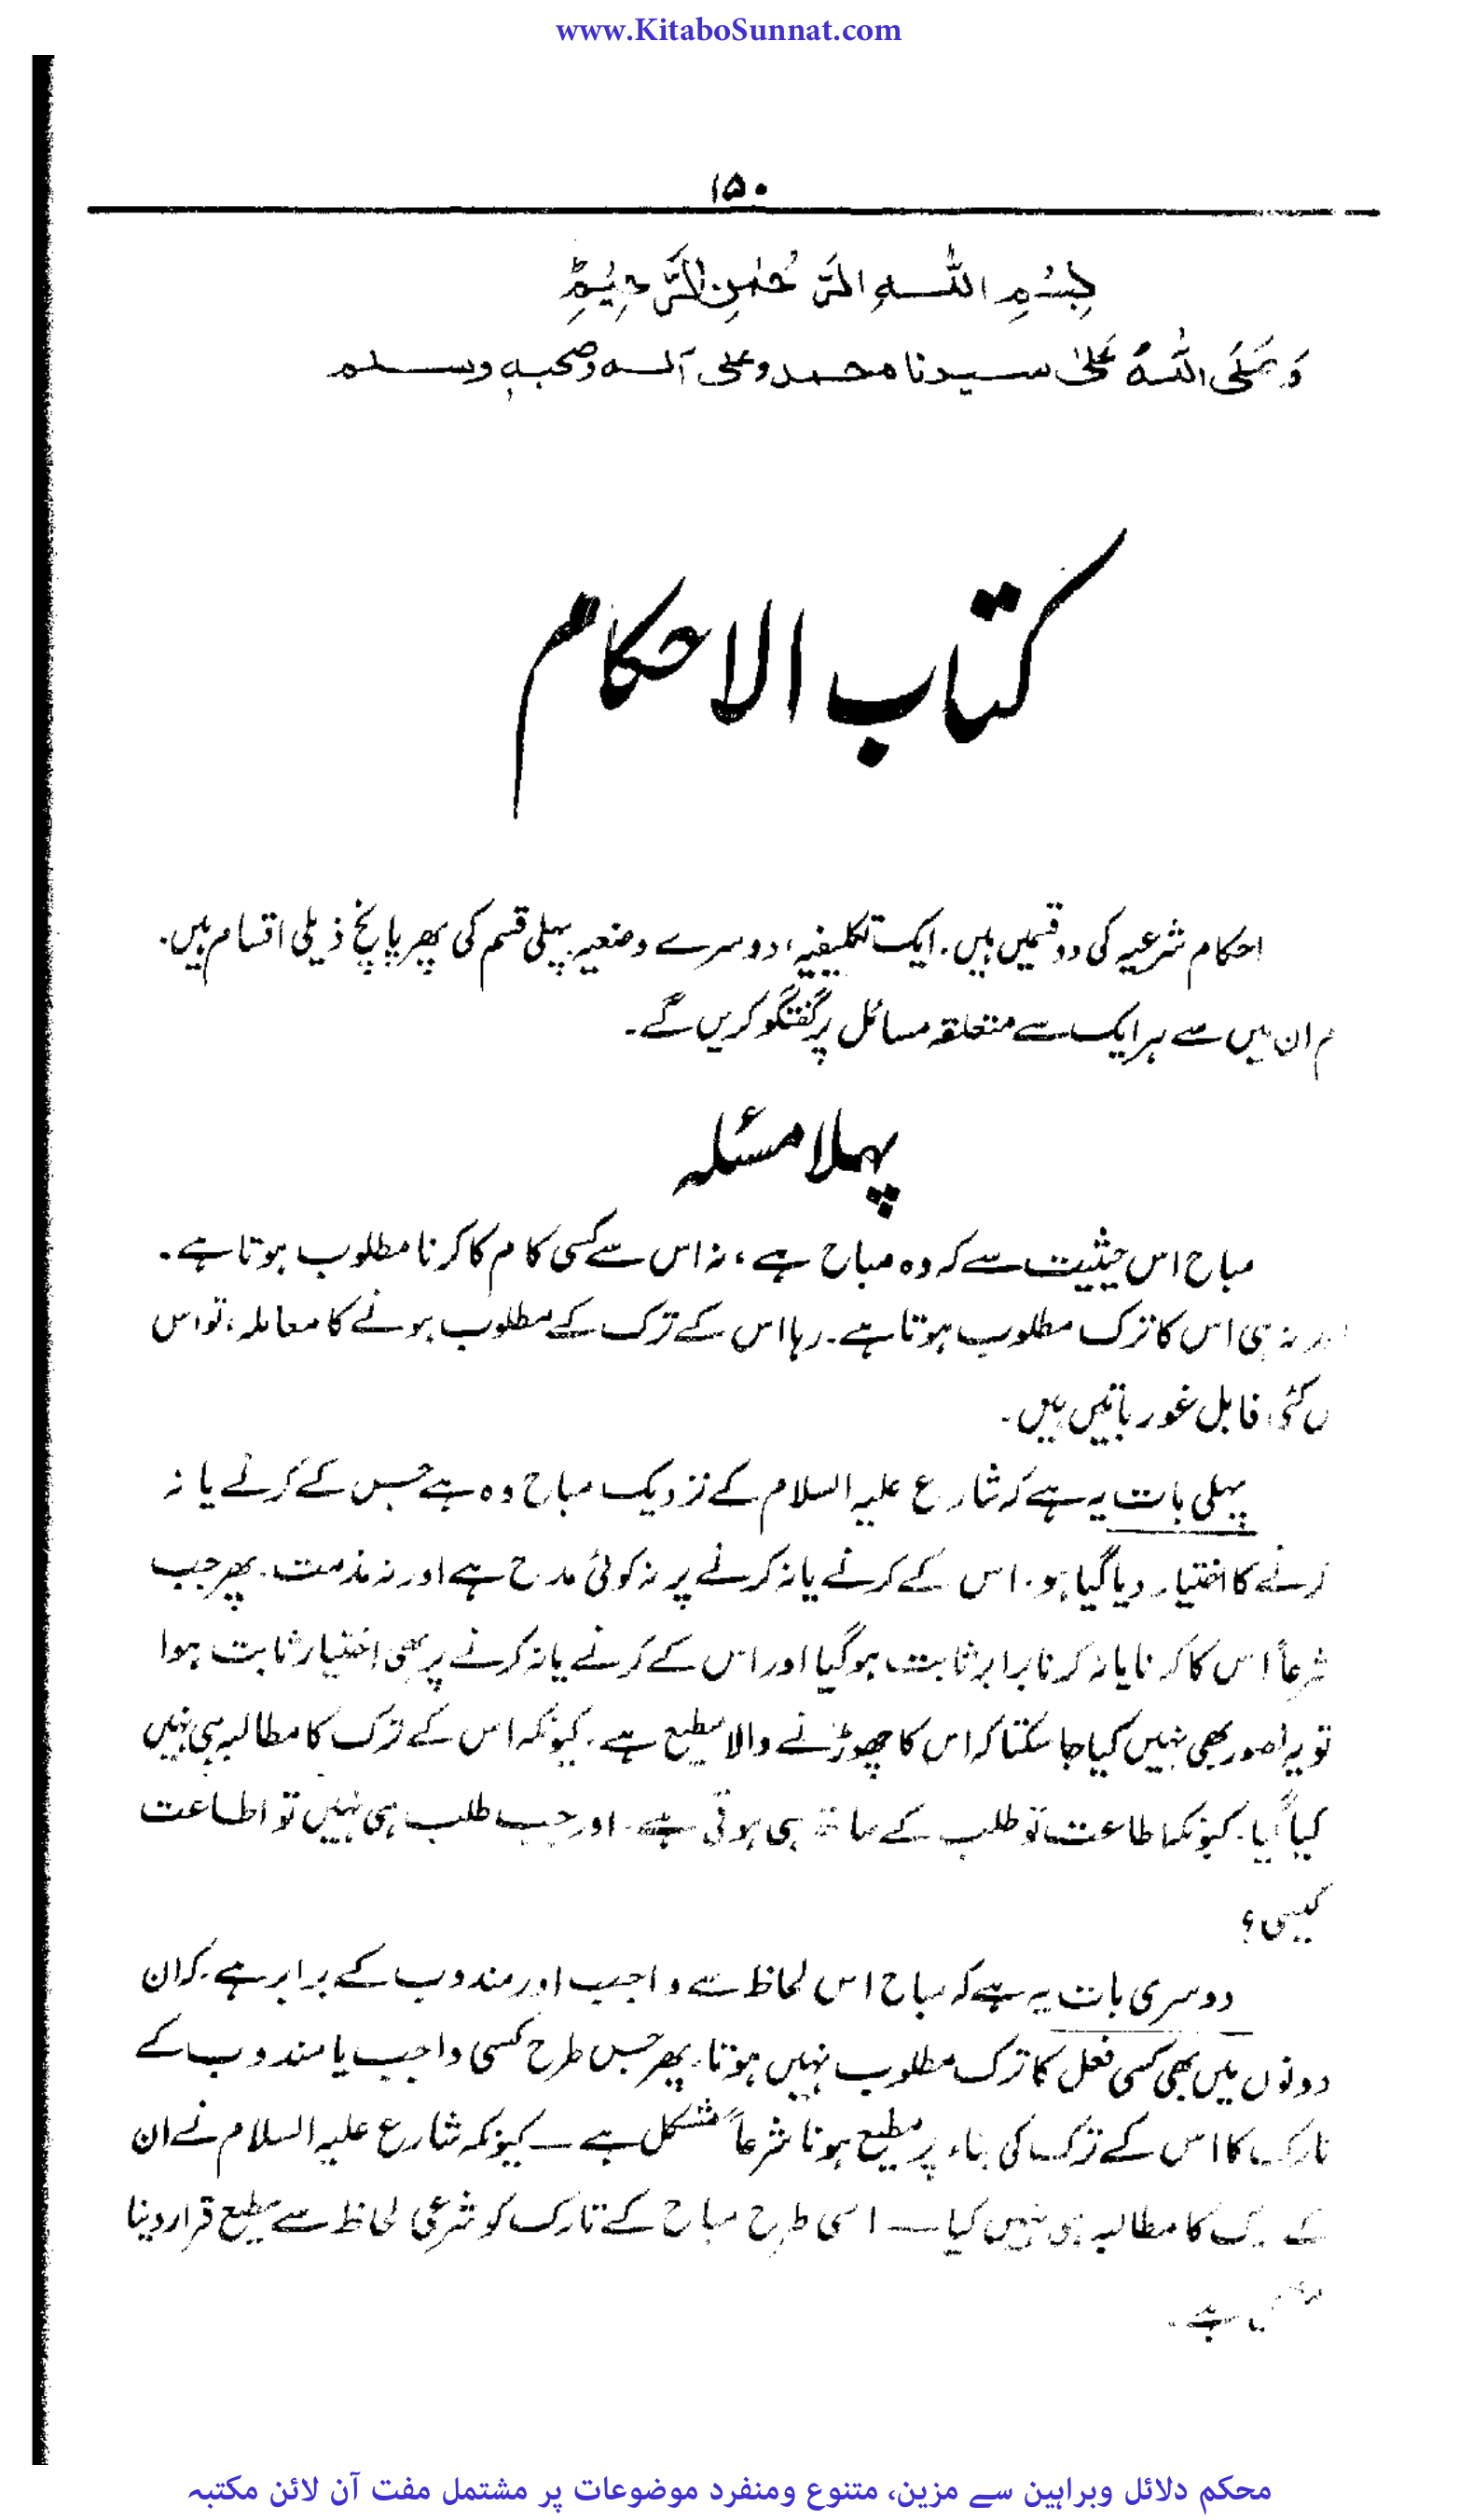 www.KitaboSunnat.com
۱۵۰
بِسْمِ اللّٰهِ الرَّحْمٰنِ الرَّحِيْمِ
وَصَلَّى اللّٰهُ عَلىٰ سيدنا محمد وعلى آله وصحبه وسلم
کتاب الاحکام
احکام شرعیہ کی دو قسمیں ہیں۔ ایک تکلیفیہ، دوسرے وضعیہ پہلی قسم کی پھر پانچ ذیلی اقسام ہیں۔
م ان میں سے ہر ایک سے متعلقہ مسائل پر گفتگو کریں گے۔
پہلا مسئلہ
مباح اس حیثیت سے کہ وہ مباح ہے، نہ اس سے کسی کام کا کرنا مطلوب ہوتا ہے۔
نہ ہی اس کا ترک مطلوب ہوتا ہے۔ رہا اس کے ترک کے مطلوب ہونے کا معاملہ، تو اس
ں کئی قابل غور باتیں ہیں۔
پہلی بات یہ ہے کہ شارع علیہ السلام کے نزدیک مباح وہ ہے جس کے کرنے یا نہ
کرنے کا اختیار دیا گیا ہو۔ اس کے کرنے یا نہ کرنے پر نہ کوئی مدح ہے اور نہ مذمت۔ پھر جب
شرعاً اس کا کرنا یا نہ کرنا برابر ثابت ہو گیا اور اس کے کرنے یا نہ کرنے پر بھی اختیار ثابت ہوا
تو یہ تصور بھی نہیں کیا جا سکتا کہ اس کا چھوڑنے والا مطیع ہے۔ کیونکہ اس کے ترک کا مطالبہ ہی نہیں
کیا گیا۔ کیونکہ اطاعت تو طلب کے ساتھ ہی ہوتی ہے۔ اور جب طلب ہی نہیں تو اطاعت
کیسی؟
دوسری بات یہ ہے کہ مباح اس لحاظ سے واجب اور مندوب کے برابر ہے۔ کہ ان
دونوں میں بھی کسی فعل کا ترک مطلوب نہیں ہوتا۔ پھر جس طرح کسی واجب یا مندوب کے
تارک کا اس کے ترک کی بناء پر مطیع ہونا شرعاً مشکل ہے ــ کیونکہ شارع علیہ السلام نے ان
کے ترک کا مطالبہ ہی نہیں کیا ــ اسی طرح مباح کے تارک کو شرعی لحاظ سے مطیع قرار دینا
ہے۔
محکم دلائل وبراہین سے مزین، متنوع ومنفرد موضوعات پر مشتمل مفت آن لائن مکتبہ